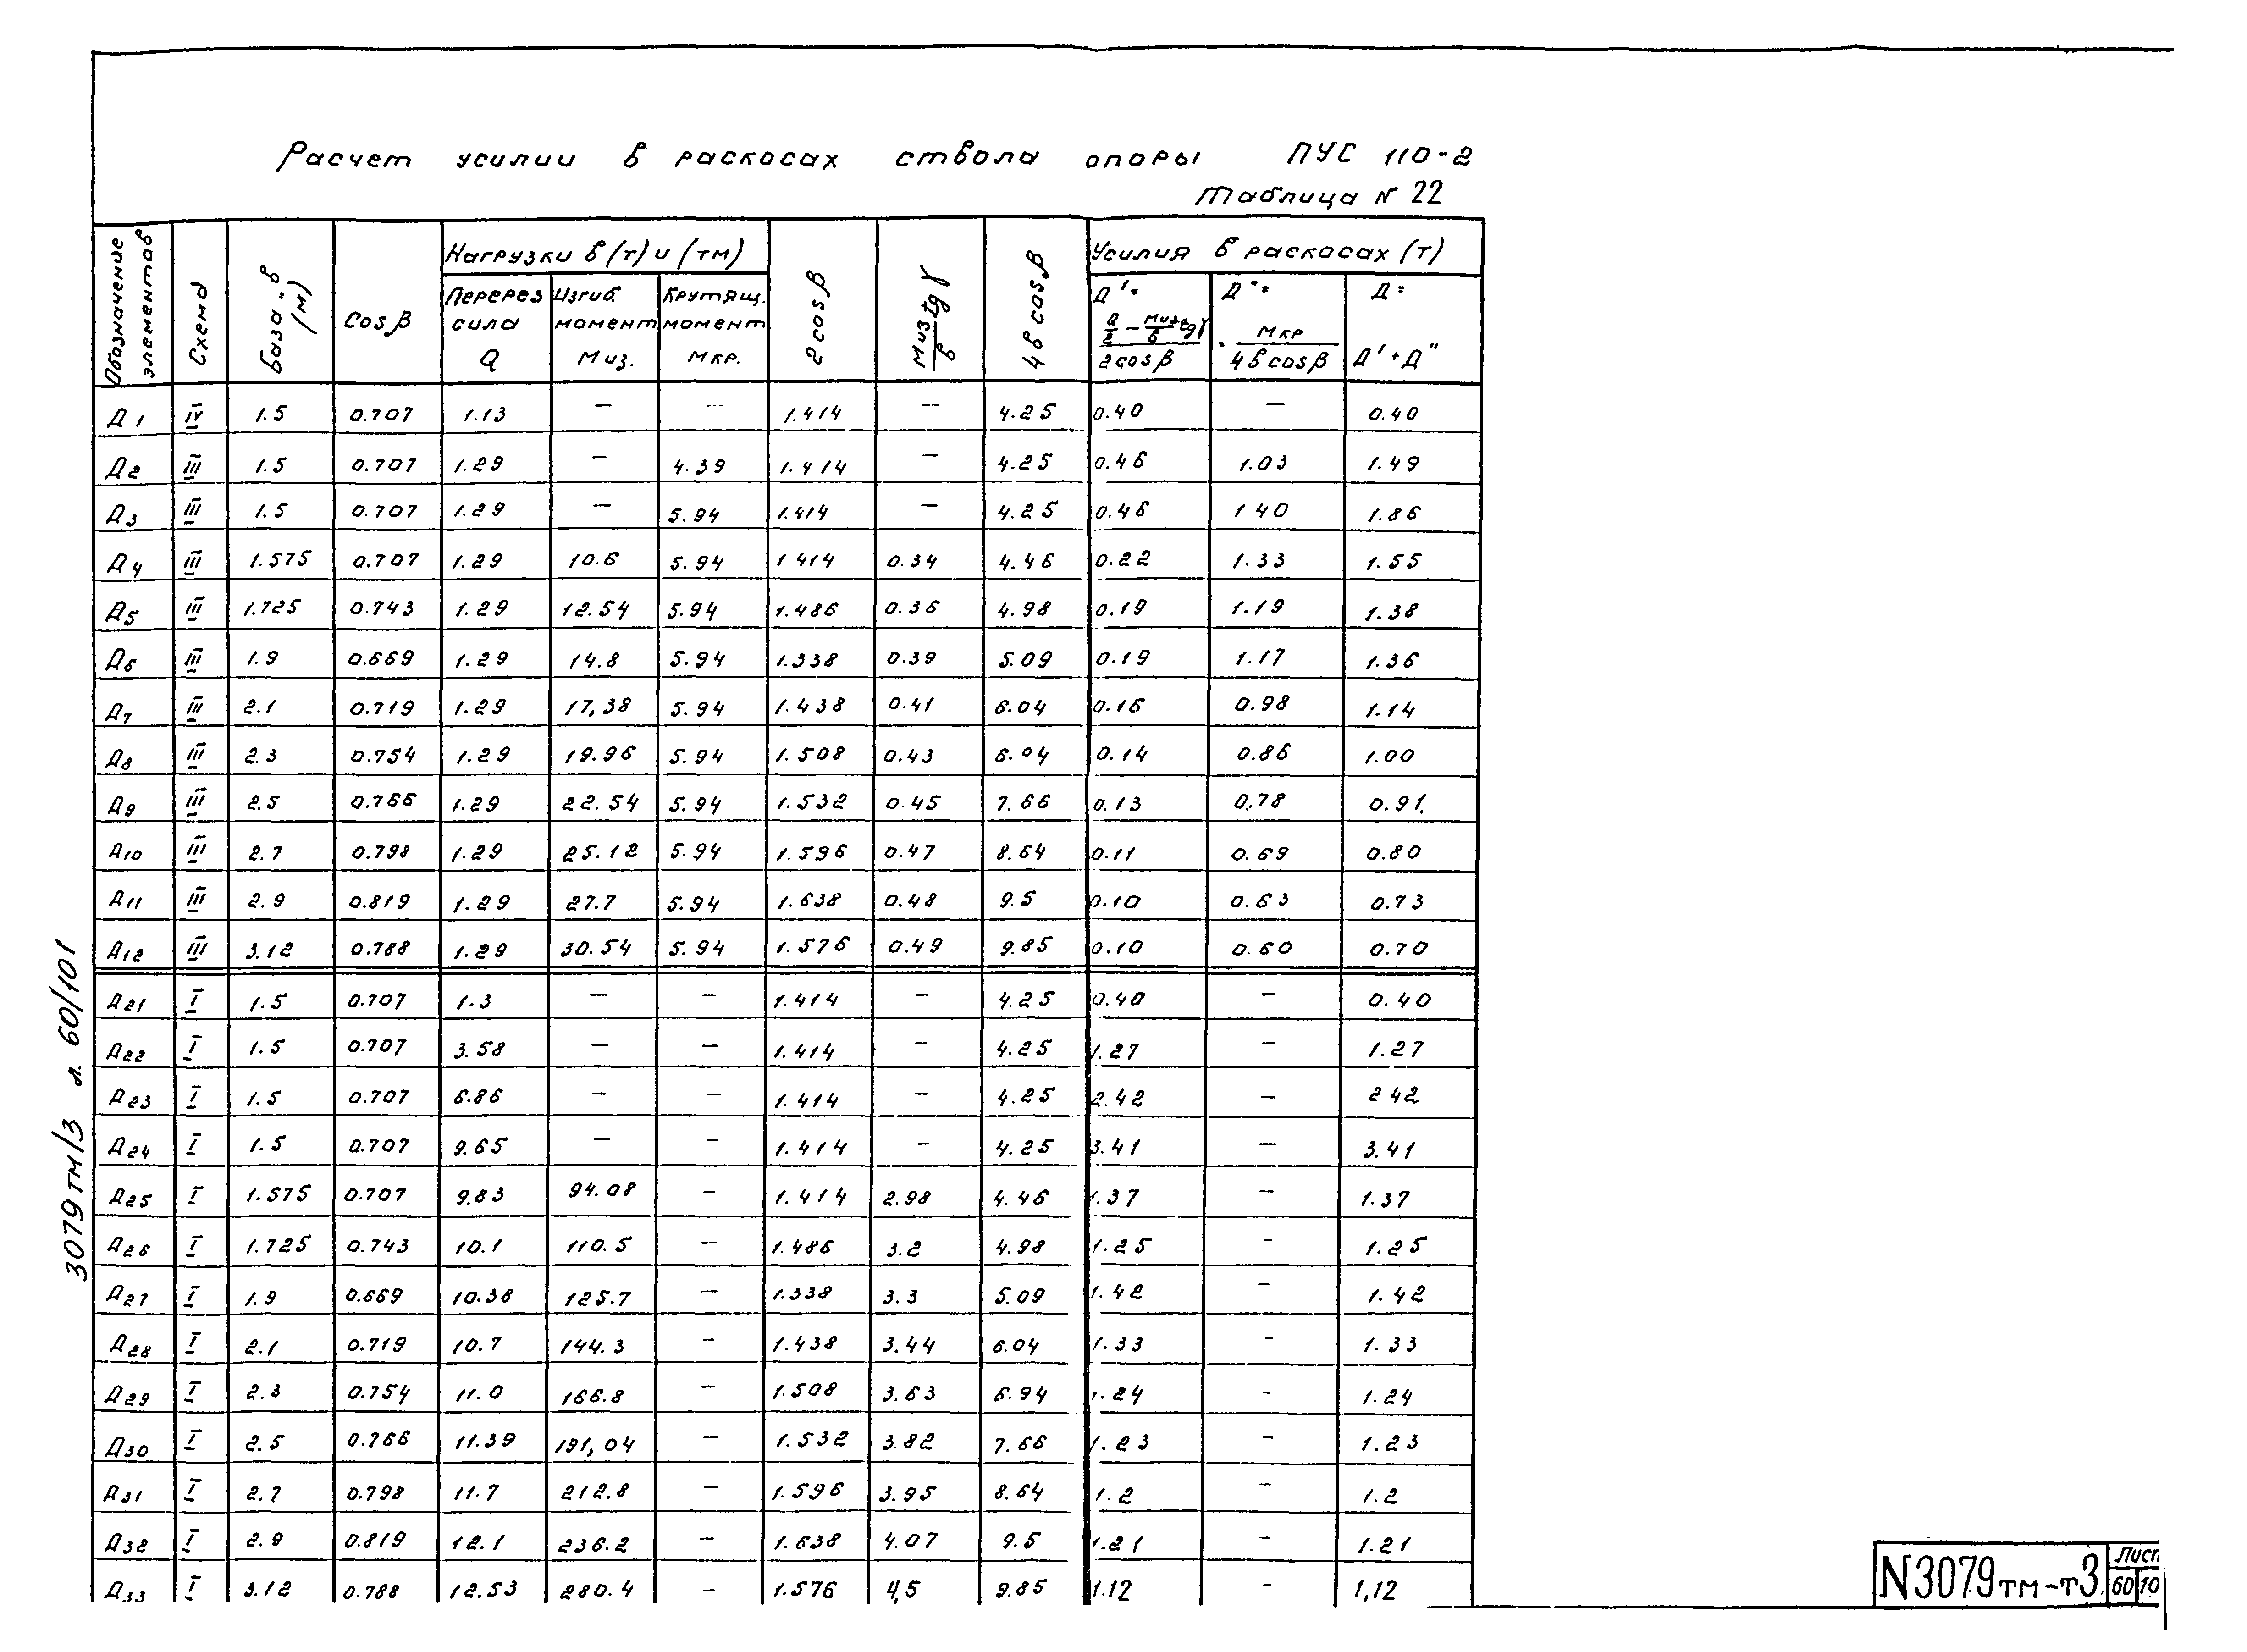 Расчет усилии в раскосах ствола опоры ПУС 110-2
Таблица N 22
Обозначение элементов | Схема | База "в" (м) | Cos β | Нагрузки в (т) и (тм) | 2 cos β | Mиз/в tg γ | 4 в cos β | Усилия в раскосах (т)
Перерез сила Q | Изгиб. момент Mиз. | Крутящ. момент Mкр. | Д' = (Q/2 − Mиз/в tg γ) / 2 cos β | Д" = = Mкр / 4 в cos β | Д = Д' + Д"
Д1 IV 1.5 0.707 1.13 — — 1.414 — 4.25 0.40 — 0.40
Д2 III 1.5 0.707 1.29 — 4.39 1.414 — 4.25 0.46 1.03 1.49
Д3 III 1.5 0.707 1.29 — 5.94 1.414 — 4.25 0.46 1 40 1.86
Д4 III 1.575 0.707 1.29 10.6 5.94 1 414 0.34 4.46 0.22 1.33 1.55
Д5 III 1.725 0.743 1.29 12.54 5.94 1.486 0.36 4.98 0.19 1.19 1.38
Д6 III 1.9 0.669 1.29 14.8 5.94 1.338 0.39 5.09 0.19 1.17 1.36
Д7 III 2.1 0.719 1.29 17,38 5.94 1.438 0.41 6.04 0.16 0.98 1.14
Д8 III 2.3 0.754 1.29 19.96 5.94 1.508 0.43 6.94 0.14 0.86 1.00
Д9 III 2.5 0.766 1.29 22.54 5.94 1.532 0.45 7.66 0.13 0.78 0.91
Д10 III 2.7 0.798 1.29 25.12 5.94 1.596 0.47 8.64 0.11 0.69 0.80
Д11 III 2.9 0.819 1.29 27.7 5.94 1.638 0.48 9.5 0.10 0.63 0.73
Д12 III 3.12 0.788 1.29 30.54 5.94 1.576 0.49 9.85 0.10 0.60 0.70
Д21 I 1.5 0.707 1.3 — — 1.414 — 4.25 0.40 — 0.40
Д22 I 1.5 0.707 3.58 — — 1.414 — 4.25 1.27 — 1.27
Д23 I 1.5 0.707 6.86 — — 1.414 — 4.25 2.42 — 2 42
Д24 I 1.5 0.707 9.65 — — 1.414 — 4.25 3.41 — 3.41
Д25 I 1.575 0.707 9.83 94.08 — 1.414 2.98 4.46 1.37 — 1.37
Д26 I 1.725 0.743 10.1 110.5 — 1.486 3.2 4.98 1.25 — 1.25
Д27 I 1.9 0.669 10.38 125.7 — 1.338 3.3 5.09 1.42 — 1.42
Д28 I 2.1 0.719 10.7 144.3 — 1.438 3.44 6.04 1.33 — 1.33
Д29 I 2.3 0.754 11.0 166.8 — 1.508 3.63 6.94 1.24 — 1.24
Д30 I 2.5 0.766 11.39 191,04 — 1.532 3.82 7.66 1.23 — 1.23
Д31 I 2.7 0.798 11.7 212.8 — 1.596 3.95 8.64 1.2 — 1.2
Д32 I 2.9 0.819 12.1 236.2 — 1.638 4.07 9.5 1.21 — 1.21
Д33 I 3.12 0.788 12.53 280.4 — 1.576 4,5 9.85 1.12 — 1,12
3079тм/3 л. 60/101
N3079тм-т3
Лист
60 10